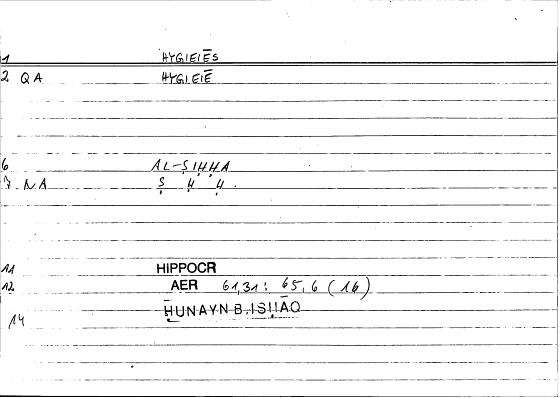 1 HYGIEIĒS
2 QA HYGIEIĒ
6 AL-ṢIḤḤA
7 NA Ṣ Ḥ Ḥ.
11 HIPPOCR
12 AER 61,31: 65,6 (16)
14 ḤUNAYN B. ISḤĀQ